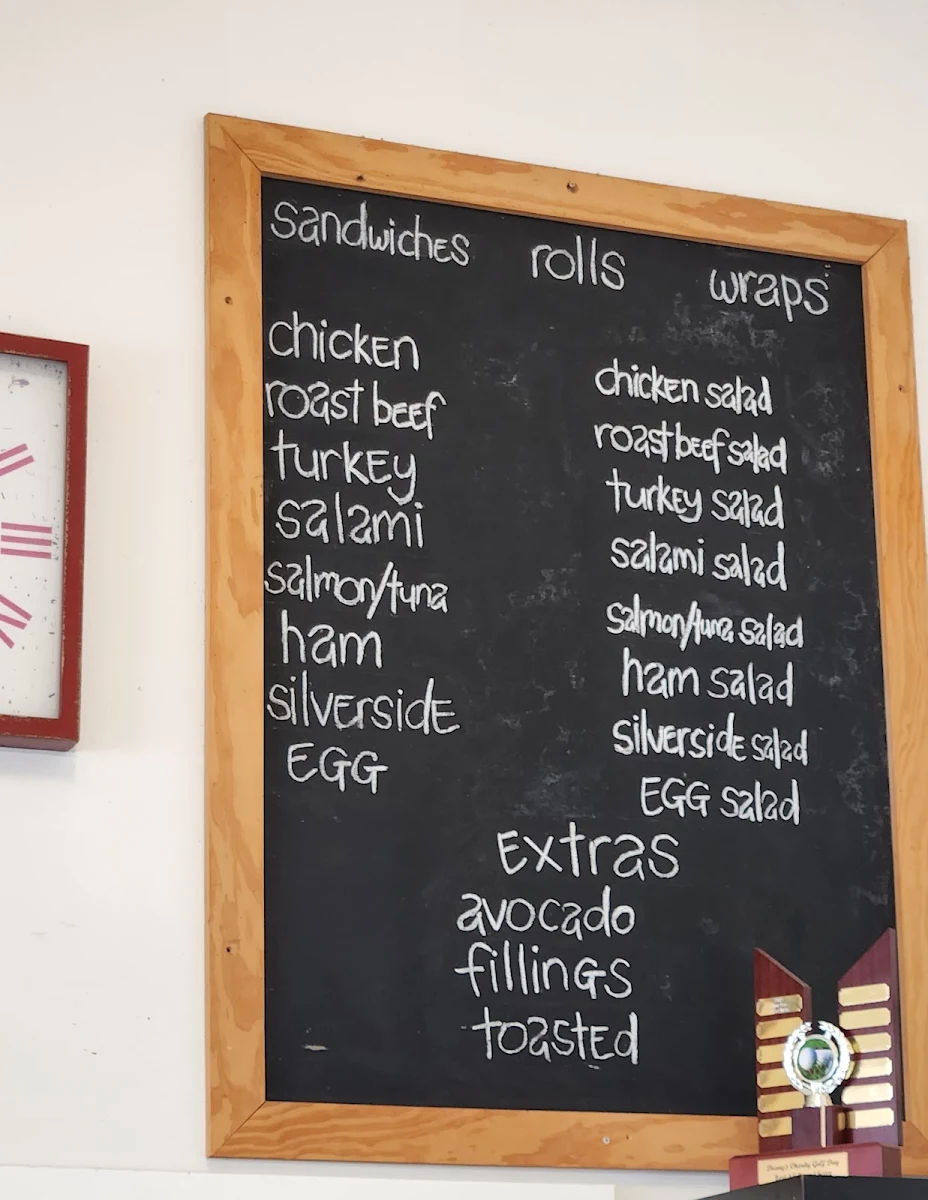 sandwiches rolls wraps
chicken
roast beef
turkey
salami
salmon/tuna
ham
silverside
EGG
chicken salad
roast beef salad
turkey salad
salami salad
salmon/tuna salad
ham salad
silverside salad
EGG salad
Extras
avocado
fillings
toasted
Charity Golf Day
III